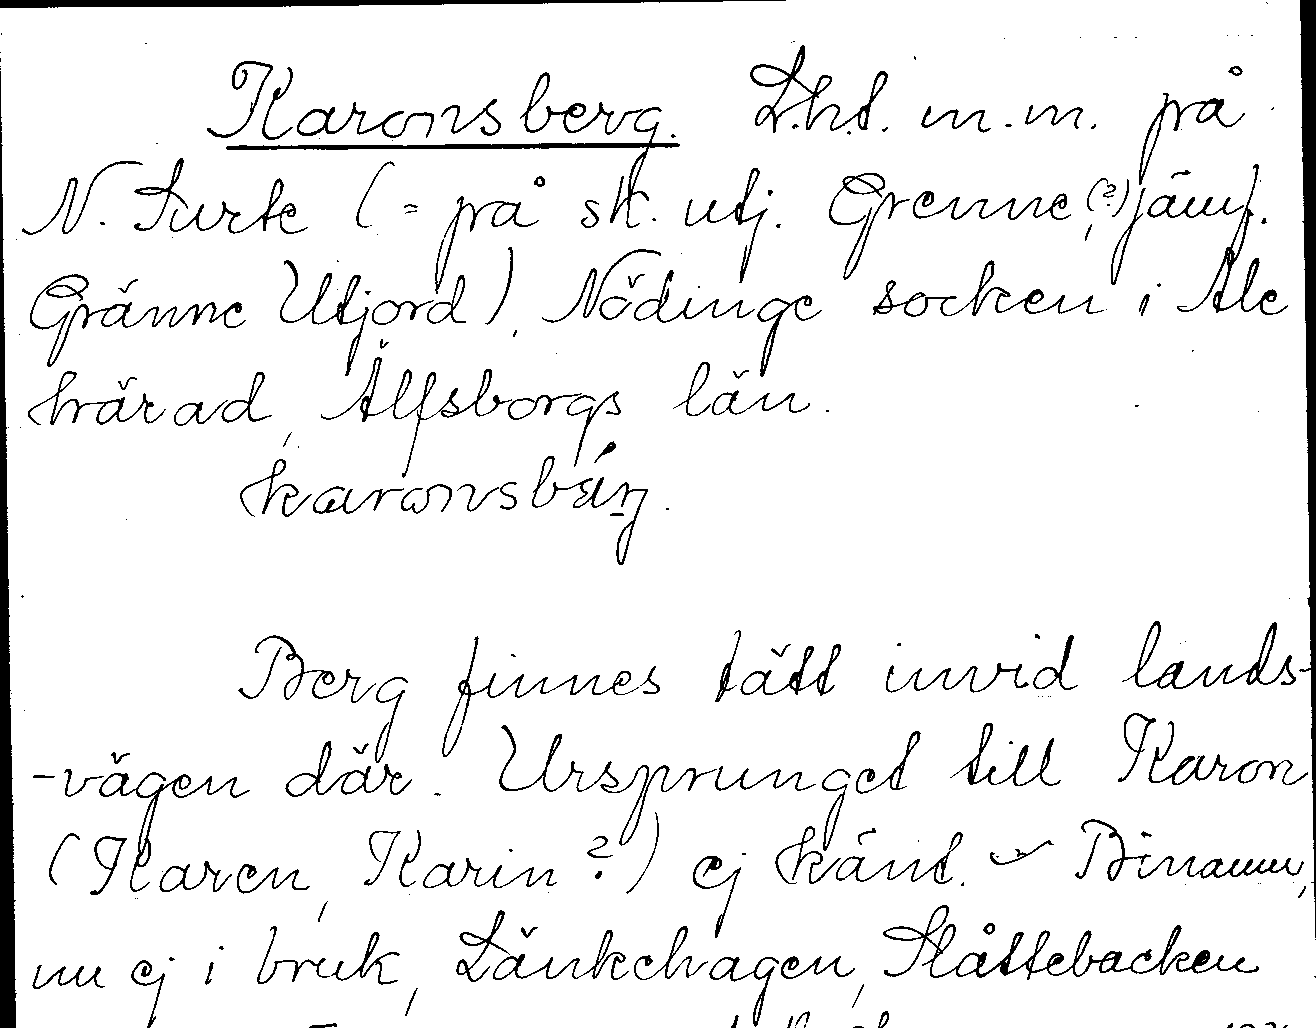 Karonsberg. Lht. m.m. på
N. Surte (= på sk. utj. Grenne, (?) jämf.
Gränne Utjord), Nödinge socken i Ale
härad, Älfsborgs län.
karonsbárj.
Berg finnes tätt invid lands-
-vägen där. Ursprunget till Karon
(Karen, Karin?) ej känt. – Binamn,
nu ej i bruk, Länkehagen, Slåttebacken